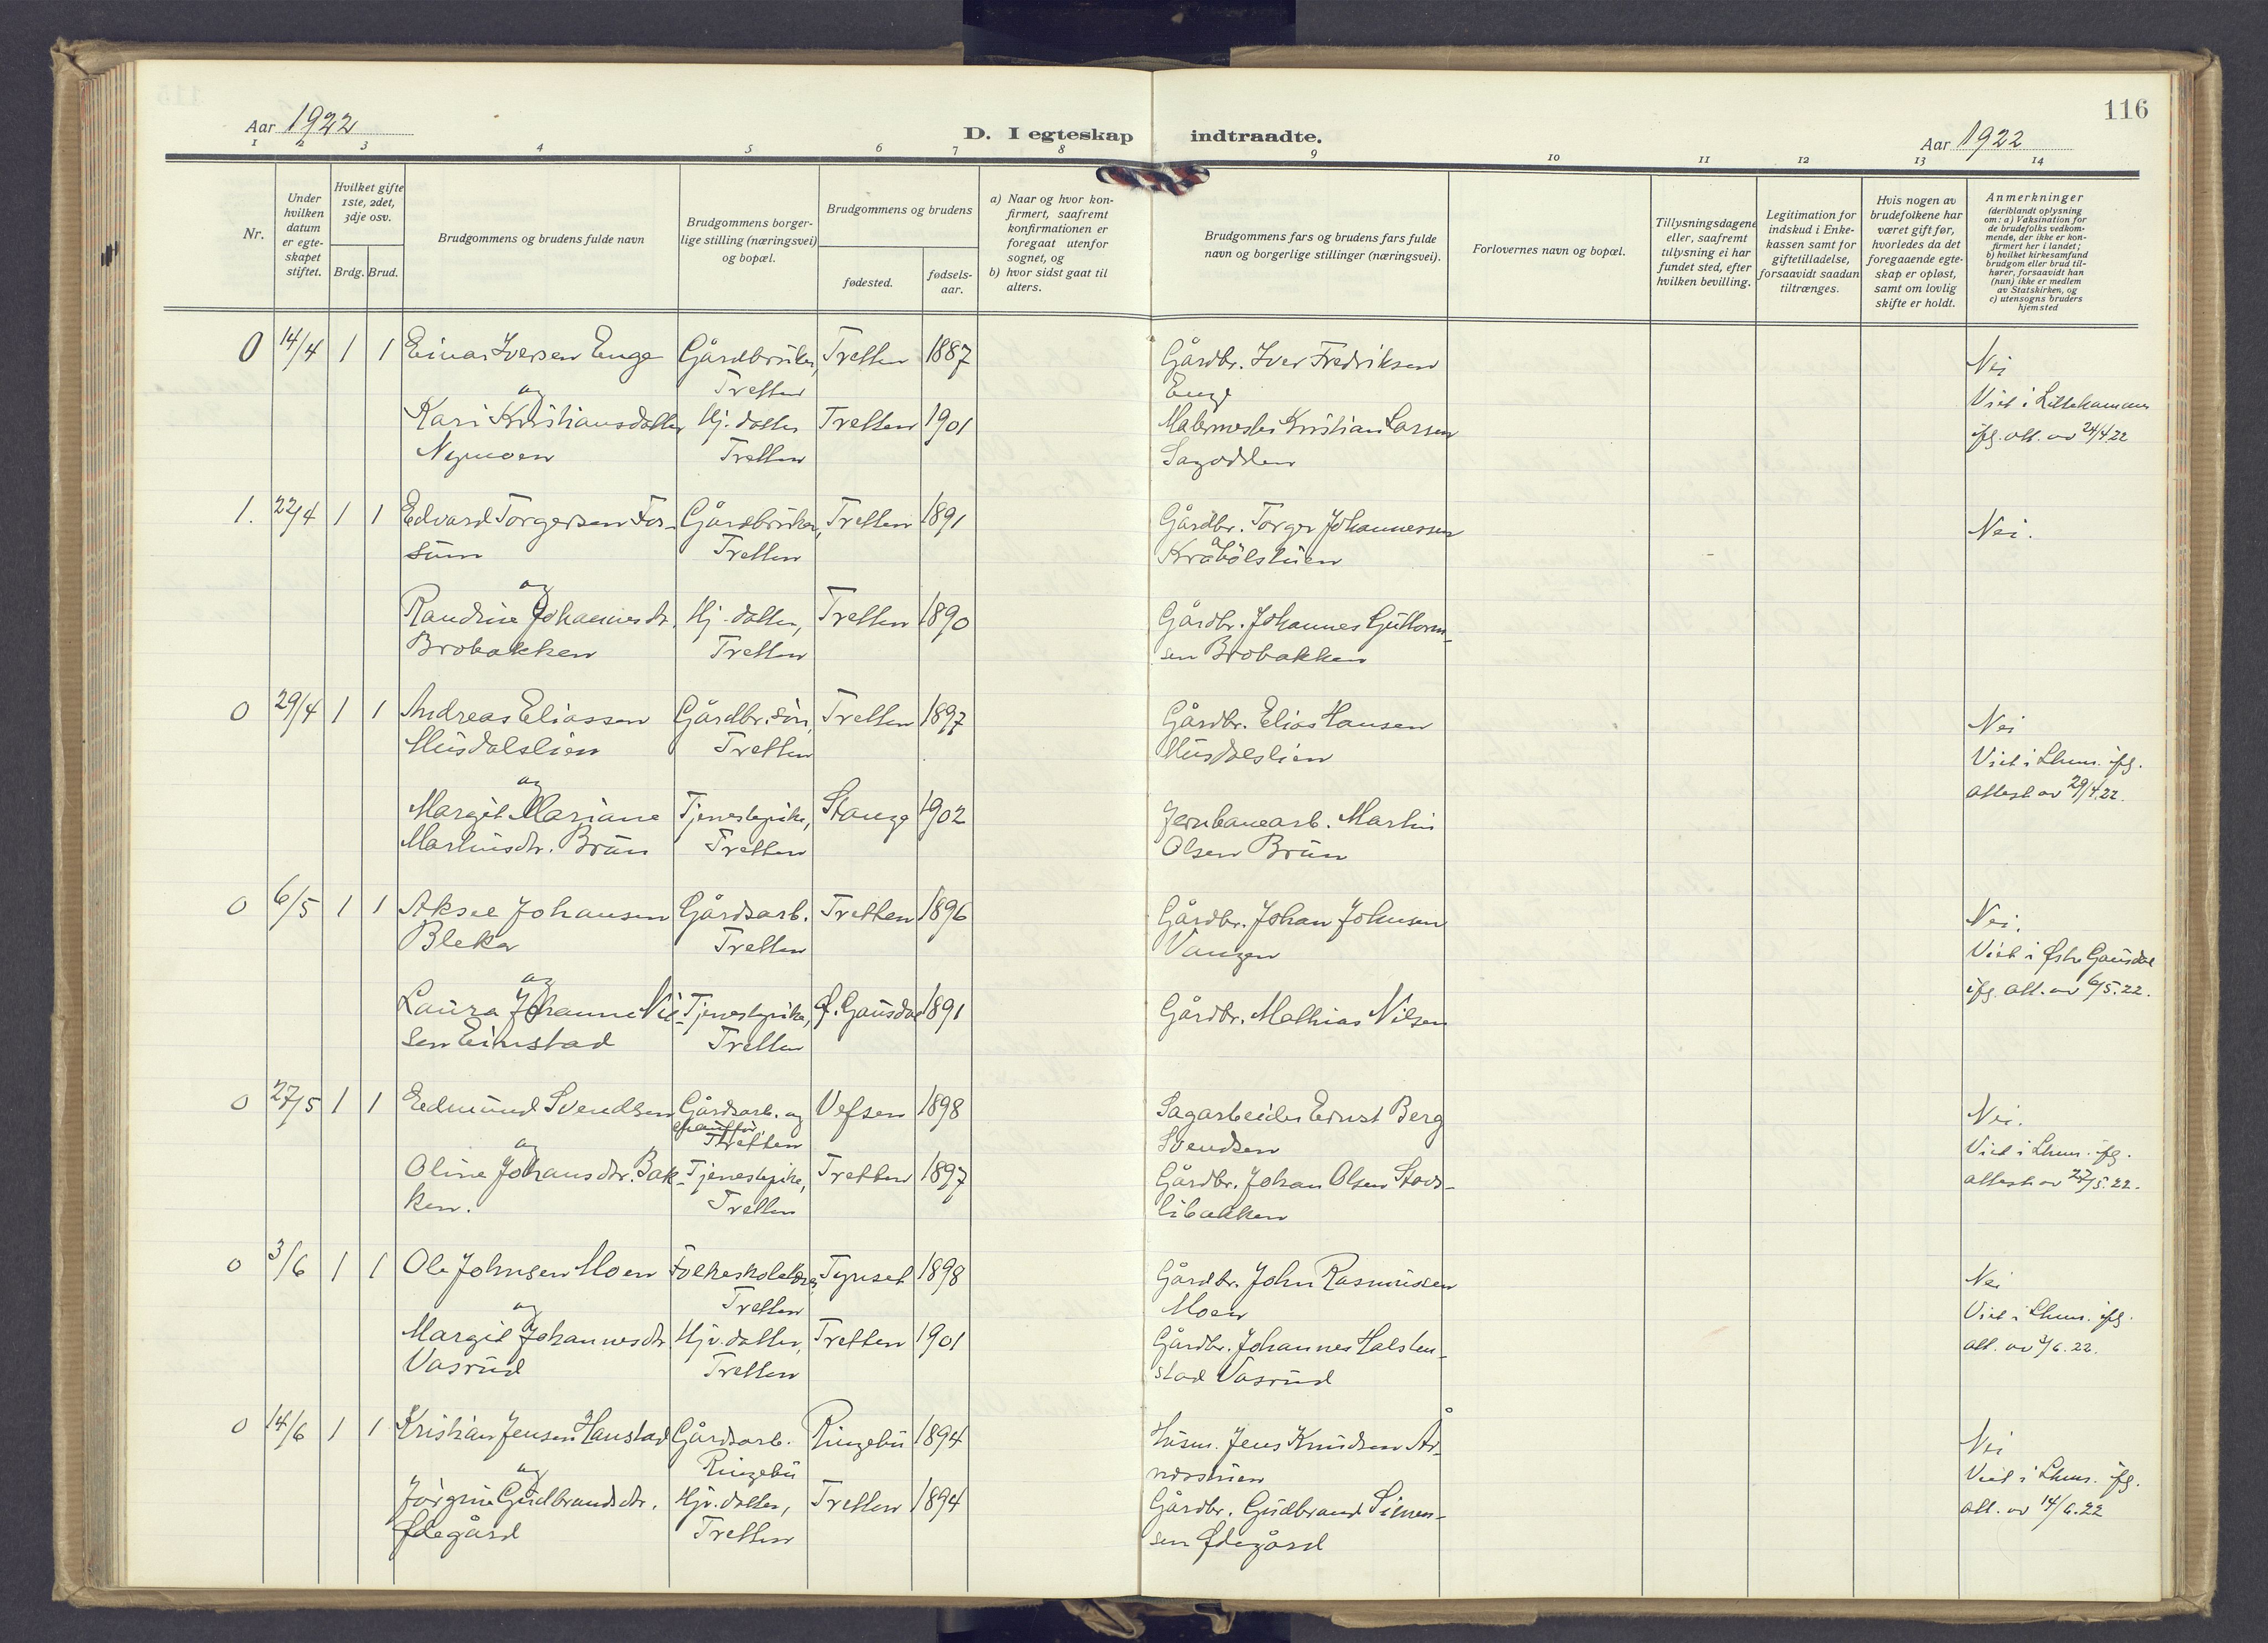 116
Aar 1922
D. I egteskap indtraadte.
Aar 1922
1 2 3 4 5 6 7 8 9 10 11 12 13 14
Nr.
Under hvilken datum er egteskapet stiftet.
Hvilket gifte 1ste, 2det, 3dje osv.
Brdg. Brud.
Brudgommens og brudens fulde navn
Brudgommens borgerlige stilling (næringsvei) og bopæl.
Brudgommens og brudens
fødested.
fødselsaar.
a) Naar og hvor konfirmert, saafremt konfirmationen er foregaat utenfor sognet, og
b) hvor sidst gaat til alters.
Brudgommens fars og brudens fars fulde navn og borgerlige stillinger (næringsvei).
Forlovernes navn og bopæl.
Tillysningsdagene eller, saafremt tillysning ei har fundet sted, efter hvilken bevilling.
Legitimation for indskud i Enkekassen samt for giftetilladelse, forsaavidt saadan tiltrænges.
Hvis nogen av brudefolkene har været gift før, hvorledes da det foregaaende egteskap er opløst, samt om lovlig skifte er holdt.
Anmerkninger
(deriblandt oplysning om: a) Vaksination for de brudefolks vedkommende, der ikke er konfirmert her i landet;
b) hvilket kirkesamfund brudgom eller brud tilhører, forsaavidt han (hun) ikke er medlem av Statskirken, og
c) utensogns bruders hjemsted
0 14/4 1 1 Einar Iversen Enge Gårdbruker, Tretten 1887 Gårdbr. Iver Fredriksen Nei
og Tretten Enge Viet i Lillehammer
Kari Kristiansdatter Hj. datter Tretten 1901 Malermester Kristian Larsen ifg. att. av 24/4 22
Nymoen Tretten Sagodden
1. 22/4 1 1 Edvard Torgersen For- Gårdbruker, Tretten 1891 Gårdbr. Torger Johannessen Nei.
sum Tretten Kråbölstuen
og
Randine Johannesdr. Hj. datter, Tretten 1890 Gårdbr. Johannes Guttorm-
Brobakken Tretten sen Brobakken
0 29/4 1 1 Andreas Eliassen Gårdbr. sön, Tretten 1897 Gårdbr. Elias Hansen Nei
Musdalslien Tretten Musdalslien Viet i Lhmr. ifg.
og attest av 29/4.22.
Margit Mariane Tjenestepike, Stange 1902 Jernbanearb. Martin
Martinsdr. Brun Tretten Olsen Brun
0 6/5 1 1 Aksel Johansen Gårdsarb. Tretten 1896 Gårdbr. Johan Johnsen Nei.
Bleka Tretten Vangen Viet i Østre Gausdal
og ifg. att. av 6/5.22.
Laura Johanne Nil- Tjenestepike, Ø. Gausdal 1891 Gårdbr. Mathias Nilsen
sen Einstad Tretten
0 27/5 1 1 Edmund Svendsen Gårdsarb. og Vefsen 1898 Sagarbeider Ernst Berg Nei.
og chauffør, Tretten Svendsen Viet i Lhmr. ifg.
Oline Johansdr. Bak- Tjenestepike, Tretten 1897 Gårdbr. Johan Olsen Stors- attest av 27/5.22.
ken. Tretten libakken
0 3/6 1 1 Ole Johnsen Moen Folkeskolelærer, Tynset 1898 Gårdbr. John Rasmussen Nei
og Tretten Moen Viet i Lhmr. ifg.
Margit Johannesdr. Hjv. datter, Tretten 1901 Gårdbr. Johannes Halsten- att. av 3/6.22.
Vasrud Tretten stad Vasrud
0 14/6 1 1 Kristian Jensen Hanstad Gårdsarb. Ringebu 1894 Husm. Jens Knudsen Nei
og Ringebu Viet i Lhmr. ifg.
Jörgine Gudbrandsdr. Hjv. datter, Tretten 1894 Gårdbr. Gudbrand Simen- att. av 14/6.22
Ødegård Tretten sen Ødegård